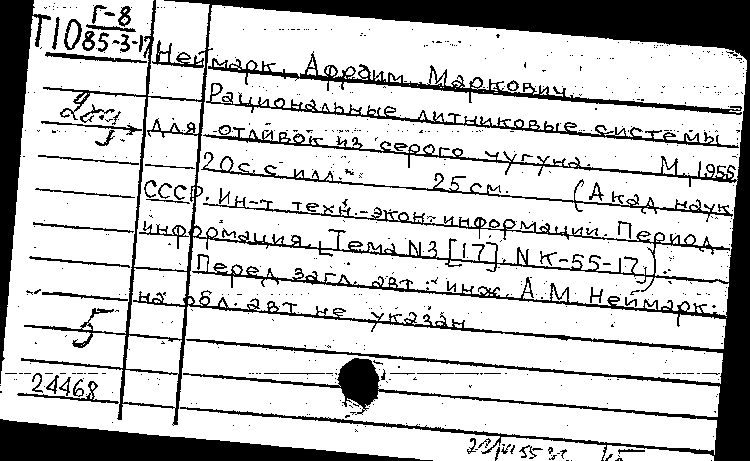 Г-8
Т10 85-3-17
Неймарк, Афраим Маркович.
Рациональные литниковые системы
для отливок из серого чугуна. М., 1955
20 с. с илл. 25 см. (Акад. наук
СССР. Ин-т техн.-экон. информации. Период.
информация. Тема N3 [17]. N К-55-17).
Перед загл. авт.: инж. А.М. Неймарк;
на обл. авт. не указан
5
24468